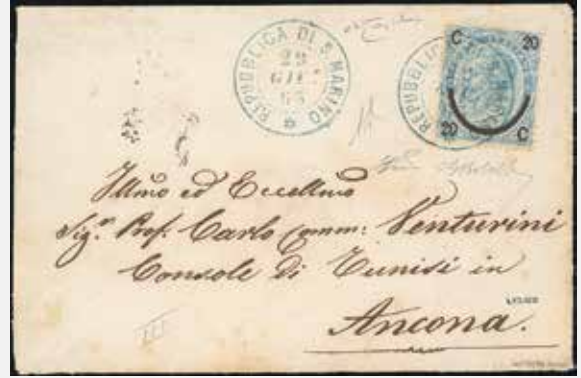 REPUBBLICA DI S. MARINO
C 20
20 C
Illmo ed Eccellmo
Sig.r Prof. Carlo Comm: Venturini
Console di Tunisi in
Ancona.
III